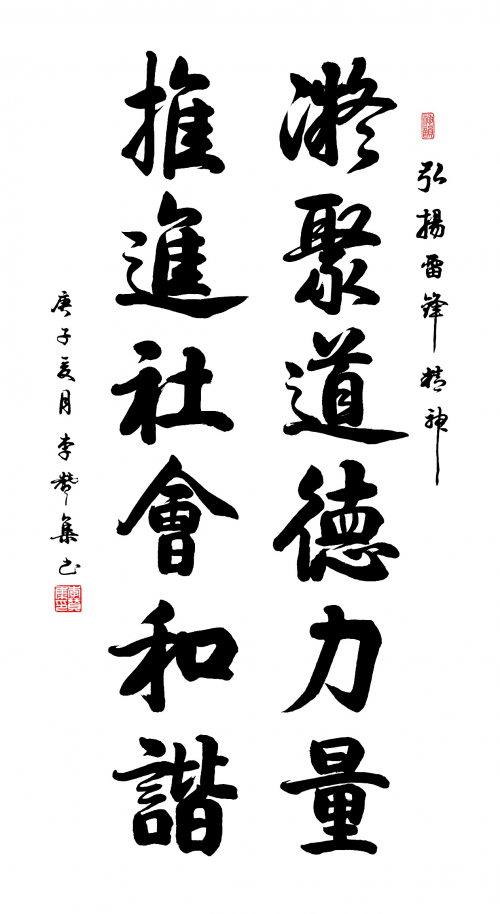 弘揚雷鋒精神
凝聚道德力量
推進社會和諧
庚子月李集书